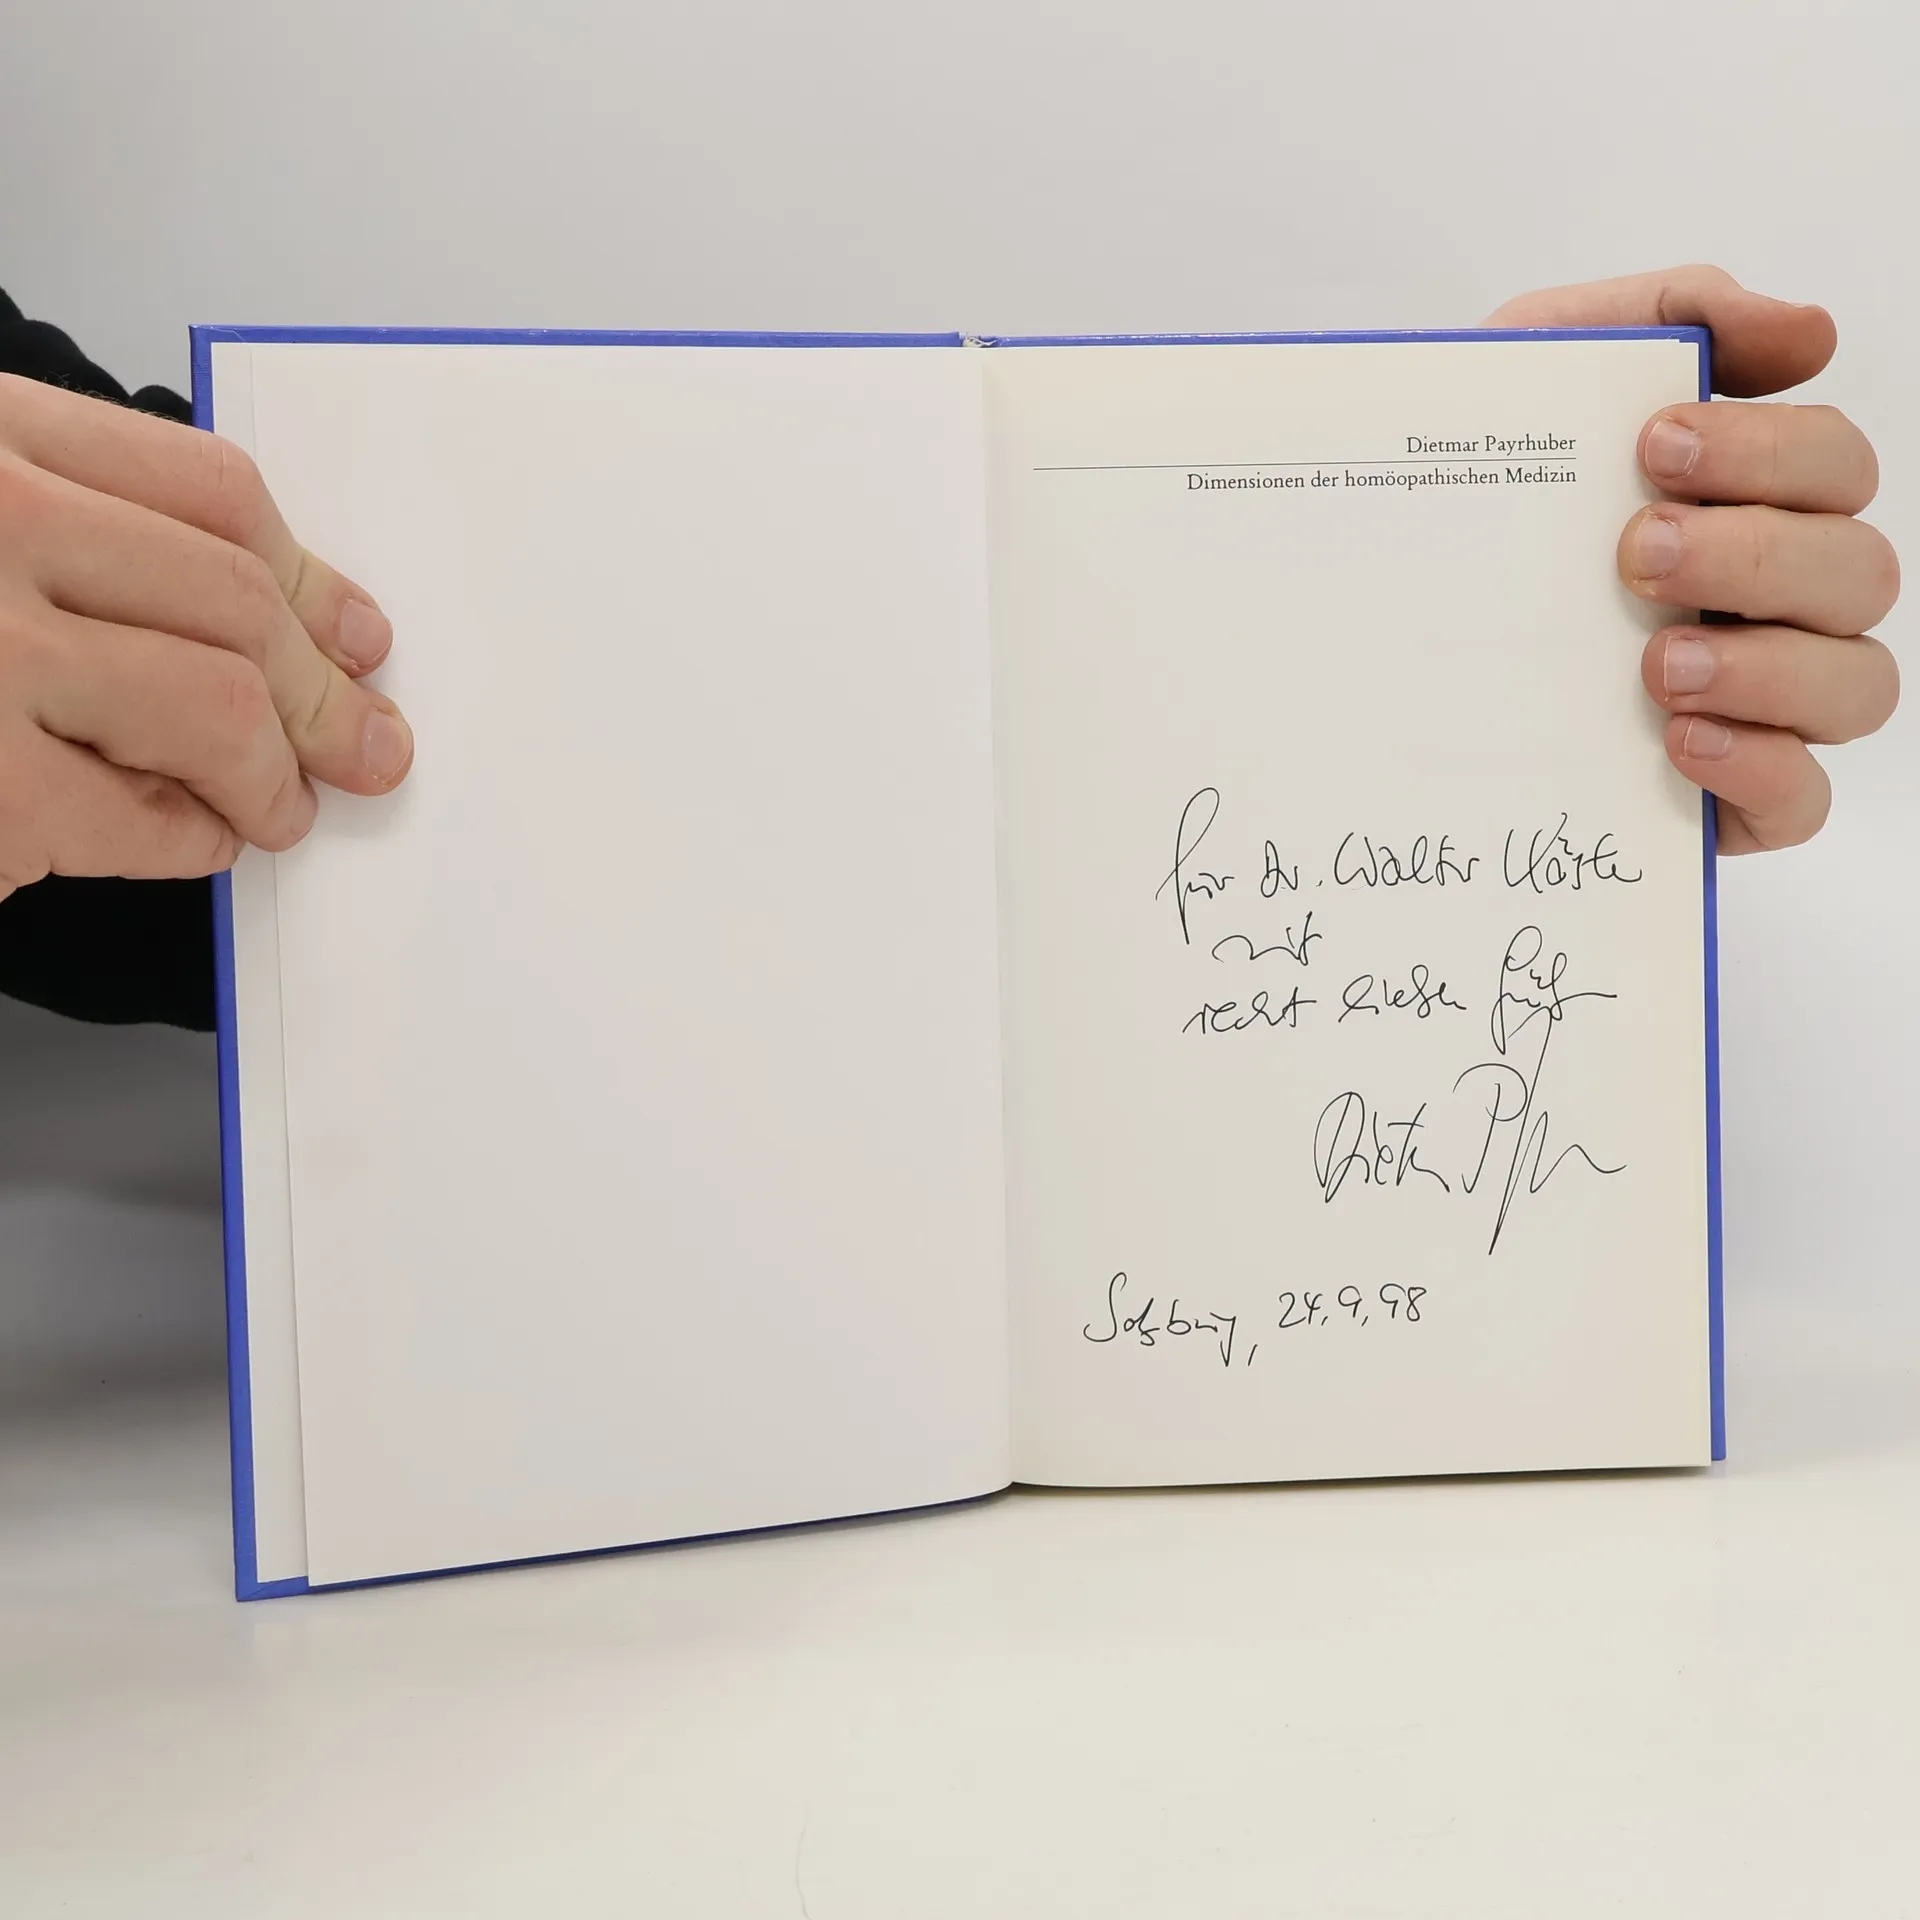 Dietmar Payrhuber
Dimensionen der homöopathischen Medizin
für Dr. Walter
mit
recht lieben Gruß
Salzburg, 24.9.98